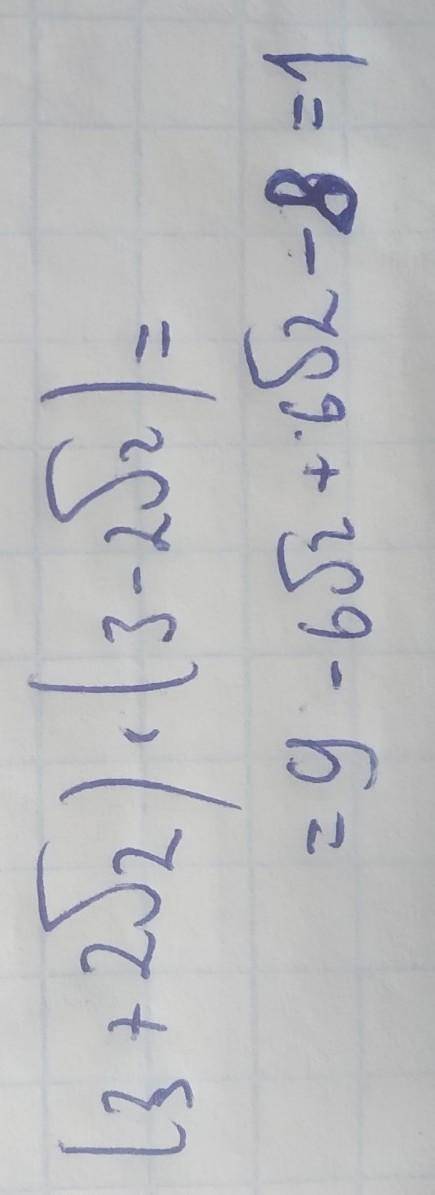 (3 + 2√2) · (3 - 2√2) =
= 9 - 6√2 + 6√2 - 8 = 1